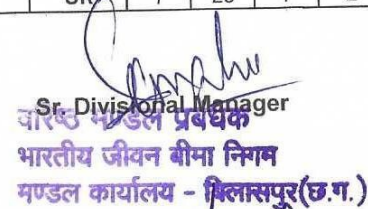 Sr. Divisional Manager
वरिष्ठ मण्डल प्रबंधक
भारतीय जीवन बीमा निगम
मण्डल कार्यालय - बिलासपुर(छ.ग.)